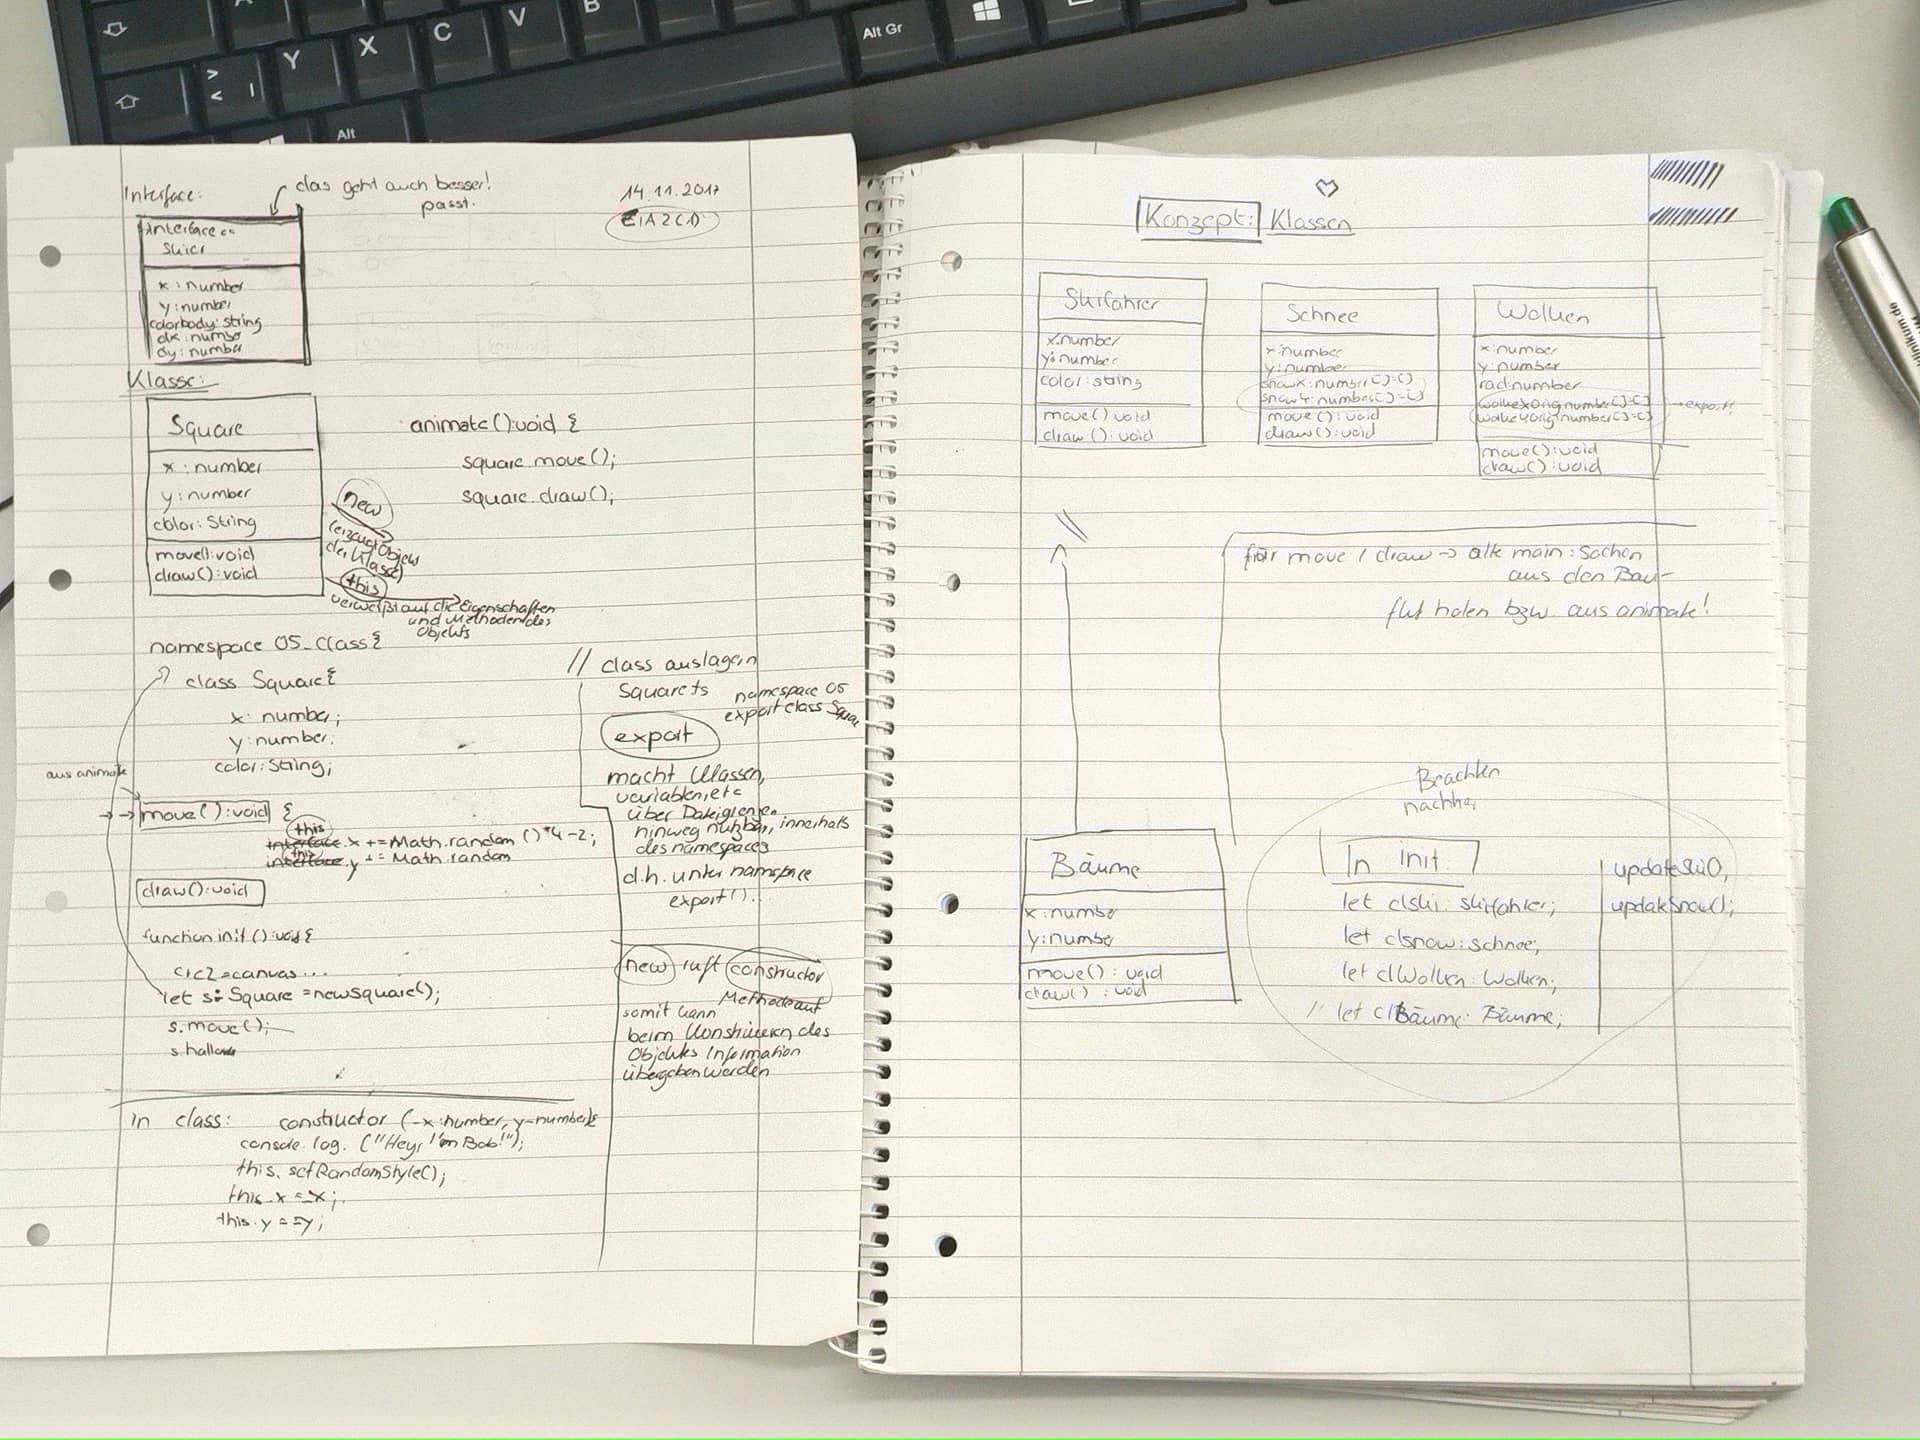 Y
X
C
V
B
Alt Gr
>
<
|
Alt
Interface:
das geht auch besser!
passt.
14.11.2017
EIA2(1)
Interface
x : number
y : number
colorbody: string
dx : number
dy : number
Klasse:
Square
x : number
y : number
color: String
move(): void
draw() : void
animate():void {
square.move();
square.draw();
new
(erzeugt Objekt
der Klasse)
this
verweißt auf die Eigenschaften
und Methoden des
Objekts
namespace 05_Class{
class Square{
x: number;
y: number.
color: String;
aus animate
move() : void {
this
interface.x += Math.random ()*4-2;
this
interface.y += Math.random
draw(): void
function init() : void {
crc2 = canvas...
let s: Square = new Square();
s.move();
In class: constructor (_x:number, _y:number){
console.log. ("Hey, I'm Bob!");
this.setRandomStyle();
this.x = _x;
this.y = _y;
// class auslagern
Square.ts
namespace 05
export class Square
export
macht Klassen,
variablen, etc
über Dateigrenzen
hinweg nutzbar, innerhalb
des namespaces
d.h. unter namespace
export()...
new ruft constructor
Methode auf
somit kann
beim Konstruieren des
Objektes Information
übergeben werden
Konzept: Klassen
Skifahrer
x: number
y: number
color : string
move() void
draw() : void
Schnee
x: number
y: number
snowX: number[] = []
snowY: number[] = []
move() : void
draw() : void
Wolken
x: number
y: number
rad: number
wolkeXOrig: number[] = []
wolkeYOrig: number[] = []
→ export?
move() : void
draw() : void
für move / draw → alte main: Sachen
aus den Bau-
flut holen bzw. aus animate!
Beachten
nachher
Bäume
x : number
y: number
move() : void
draw() : void
In init
let clski: skifahrer;
let clsnow: schnee;
let clWolken: Wolken;
// let clBäume: Bäume;
updateSki();
updateSnow();